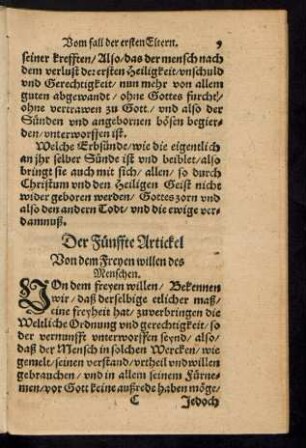 Vom fall der ersten Eltern. 9
seiner krefften/ Also/ das der mensch nach
dem verlust der ersten Heiligkeit/ vnschuld
vnd Gerechtigkeit/ nun mehr von allem
guten abgewandt / ohne Gottes furcht/
ohne vertrawen zu Gott/ vnd also der
Sünden vnd angebornen bösen begier-
den/ vnterworffen ist.
Welche Erbsünde/ wie die eigentlich
an jhr selber Sünde ist vnd beibet/ also
bringt sie auch mit sich/ allen/ so durch
Christum vnd den Heiligen Geist nicht
wider geboren werden/ Gottes zorn vnd
also den andern Todt/ vnd die ewige ver-
damnuß.
Der Fünffte Artickel
Von dem Freyen willen des
Menschen.
VOn dem freyen willen/ Bekennen
wir/ daß derselbige etlicher maß/
eine freyheit hat/ zuverbringen die
Weltliche Ordnung vnd gerechtigkeit/ so
der vernunfft vnterworffen seynd/ also/
daß der Mensch in solchen Wercken/ wie
gemelt/ seinen verstand/ vrtheil vnd willen
gebrauchen/ vnd in allem seinem Fürne-
men/ vor Gott keine außrede haben möge/
C Jedoch